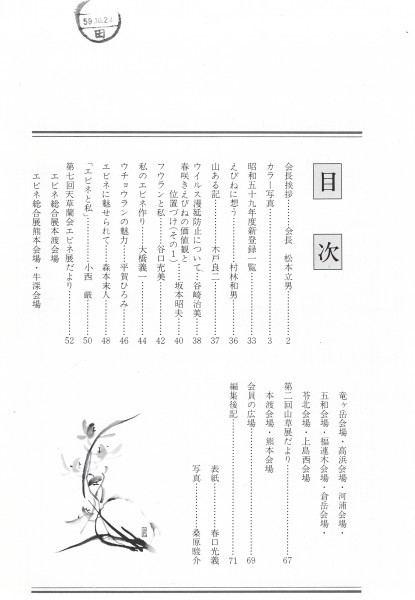 59.10.24
田
目次
会長挨拶……会長 松本立男……2
カラー写真……3
昭和五十九年度新登録一覧……33
えびねに想う……村林和男……36
山ある記……木戸良二……37
ウイルス蔓延防止について……谷崎治美……38
春咲きえびねの価値観と
位置づけ(その1)……坂本昭夫……40
フウランと私……谷口充美……42
私のエビネ作り……大橋義一……44
ウチョウランの魅力……平賀ひろみ……46
エビネに魅せられて……森本末人……48
「エビネと私」……小西 厳……50
第七回天草蘭会エビネ展だより……52
エビネ総合展本渡会場
エビネ総合展熊本会場・牛深会場
竜ヶ岳会場・高浜会場・河浦会場・
五和会場・福連木会場・倉岳会場・
苓北会場・上島西会場
第二回山草展だより……67
本渡会場・熊本会場
会員の広場……69
編集後記……71
表紙……春口光義
写真……桑原駿介